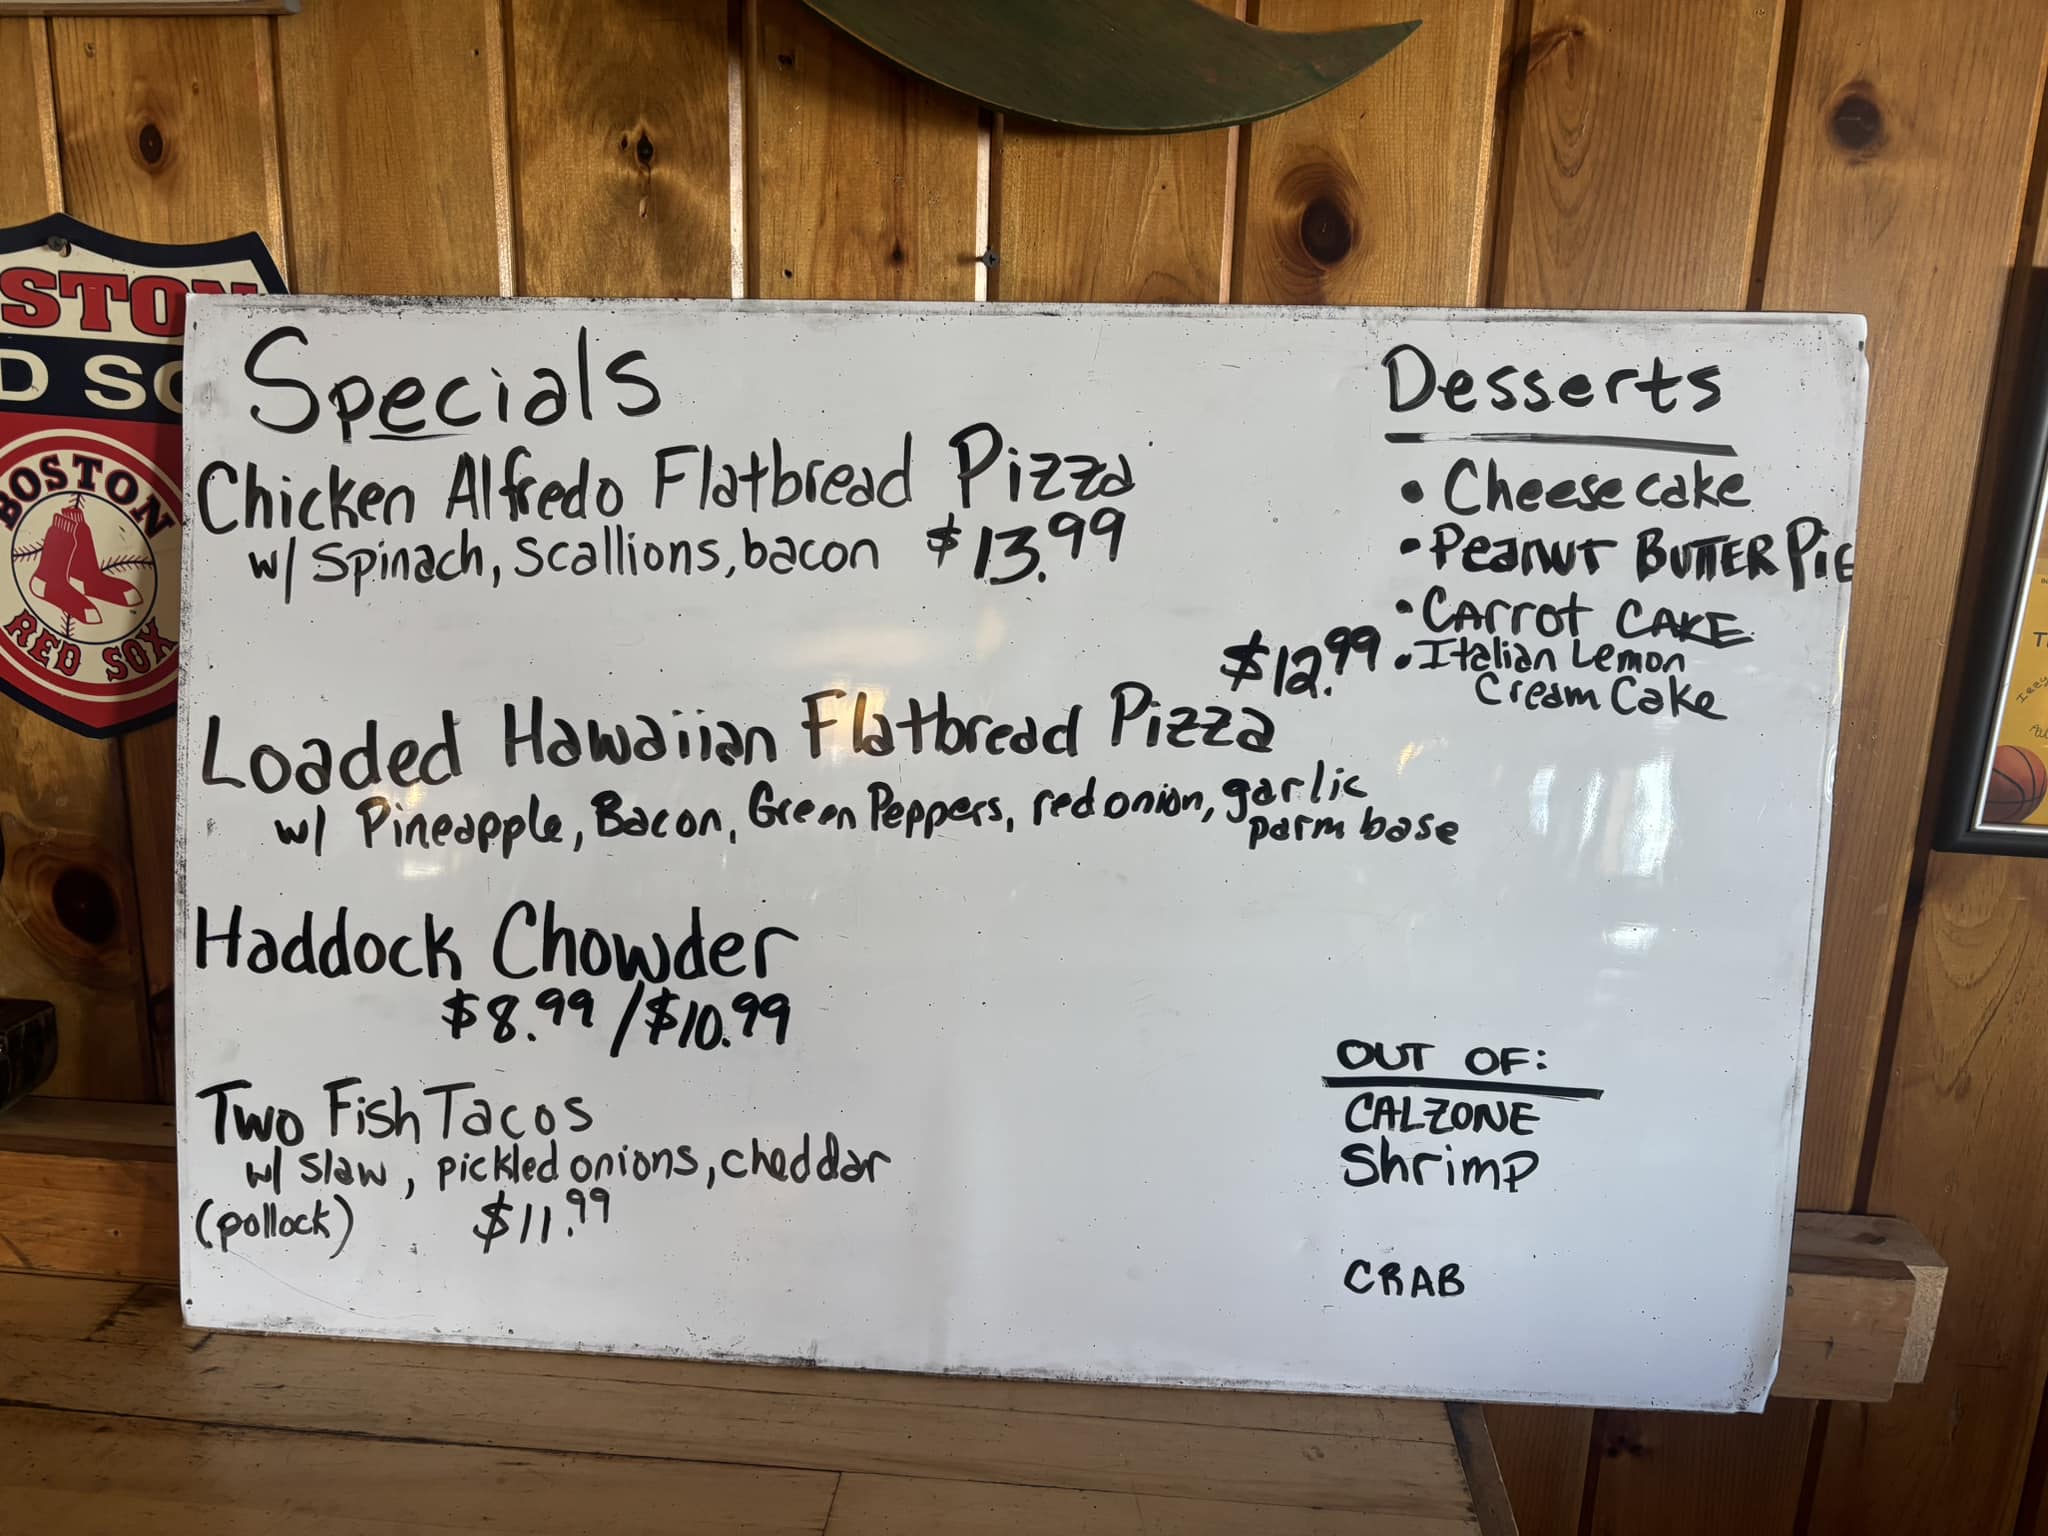 Specials
Chicken Alfredo Flatbread Pizza
w/ Spinach, Scallions, bacon $13.99
$12.99
Loaded Hawaiian Flatbread Pizza
w/ Pineapple, Bacon, Green Peppers, red onion, garlic
parm base
Haddock Chowder
$8.99 / $10.99
Two Fish Tacos
w/ slaw, pickled onions, cheddar
(pollock) $11.99
Desserts
• Cheesecake
• Peanut Butter Pie
• Carrot Cake
• Italian Lemon
Cream Cake
OUT OF:
CALZONE
Shrimp
CRAB
STON
D SO
BOSTON
RED SOX